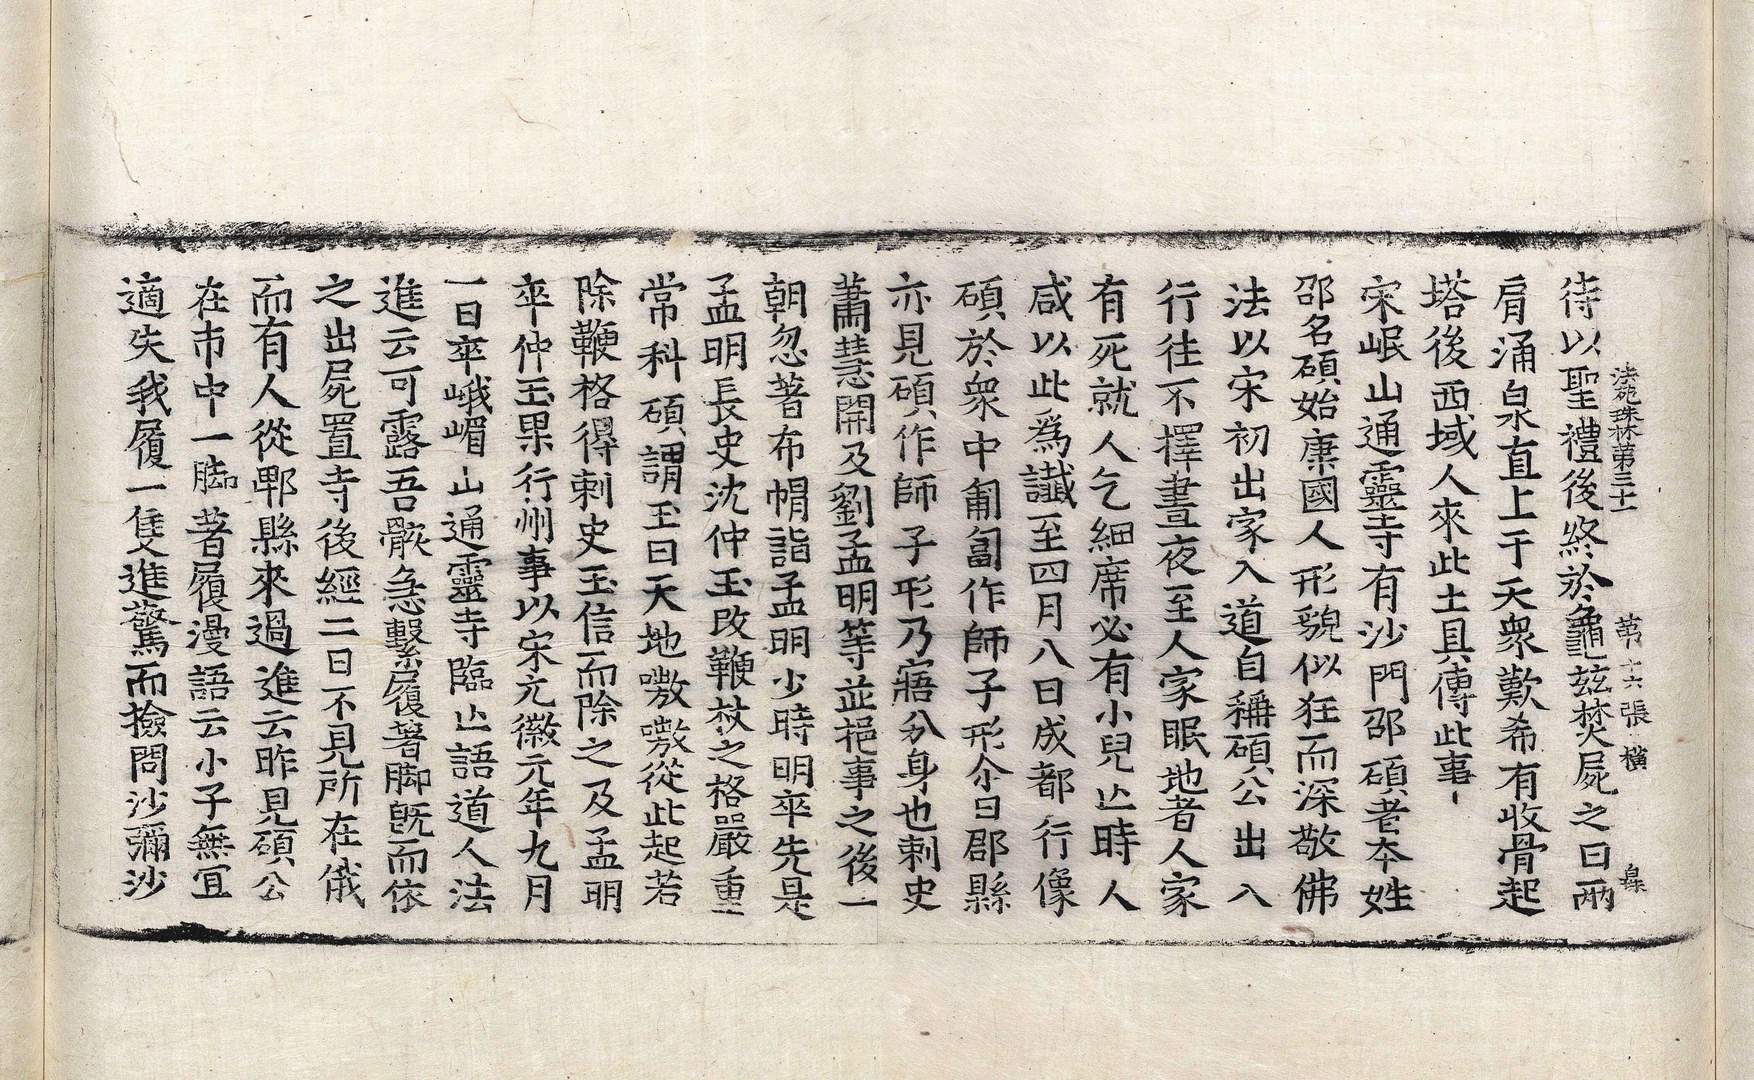 法苑珠林第三十一　第十六張　橫
待以聖禮後終於龜茲焚屍之日兩
肩涌泉直上于天衆歎希有收骨起
塔後西域人來此土具傳此事
宋岷山通靈寺有沙門邵碩者本姓
邵名碩始康國人形貌似狂而深敬佛
法以宋初出家入道自稱碩公出入
行往不擇晝夜至人家眠地者人家
有死就人乞細席必有小兒亡時人
咸以此爲讖至四月八日成都行像
碩於衆中匍匐作師子形尒日郡縣
亦見碩作師子形乃寤分身也刺史
蕭慧開及劉孟明等並挹事之後一
朝忽著布帽詣孟明少時明卒先是
孟明長史沈仲玉改鞭杖之格嚴重
常科碩謂玉曰天地嗷嗷從此起若
除鞭格得刺史玉信而除之及孟明
卒仲玉果行州事以宋元徽元年九月
一日卒峨嵋山通靈寺臨亡語道人法
進云可露吾骸急繫履著脚旣而依
之出屍置寺後經二日不見所在俄
而有人從郫縣來過進云昨見碩公
在市中一脚著履漫語云小子無宜
適失我履一隻進驚而撿問沙彌沙